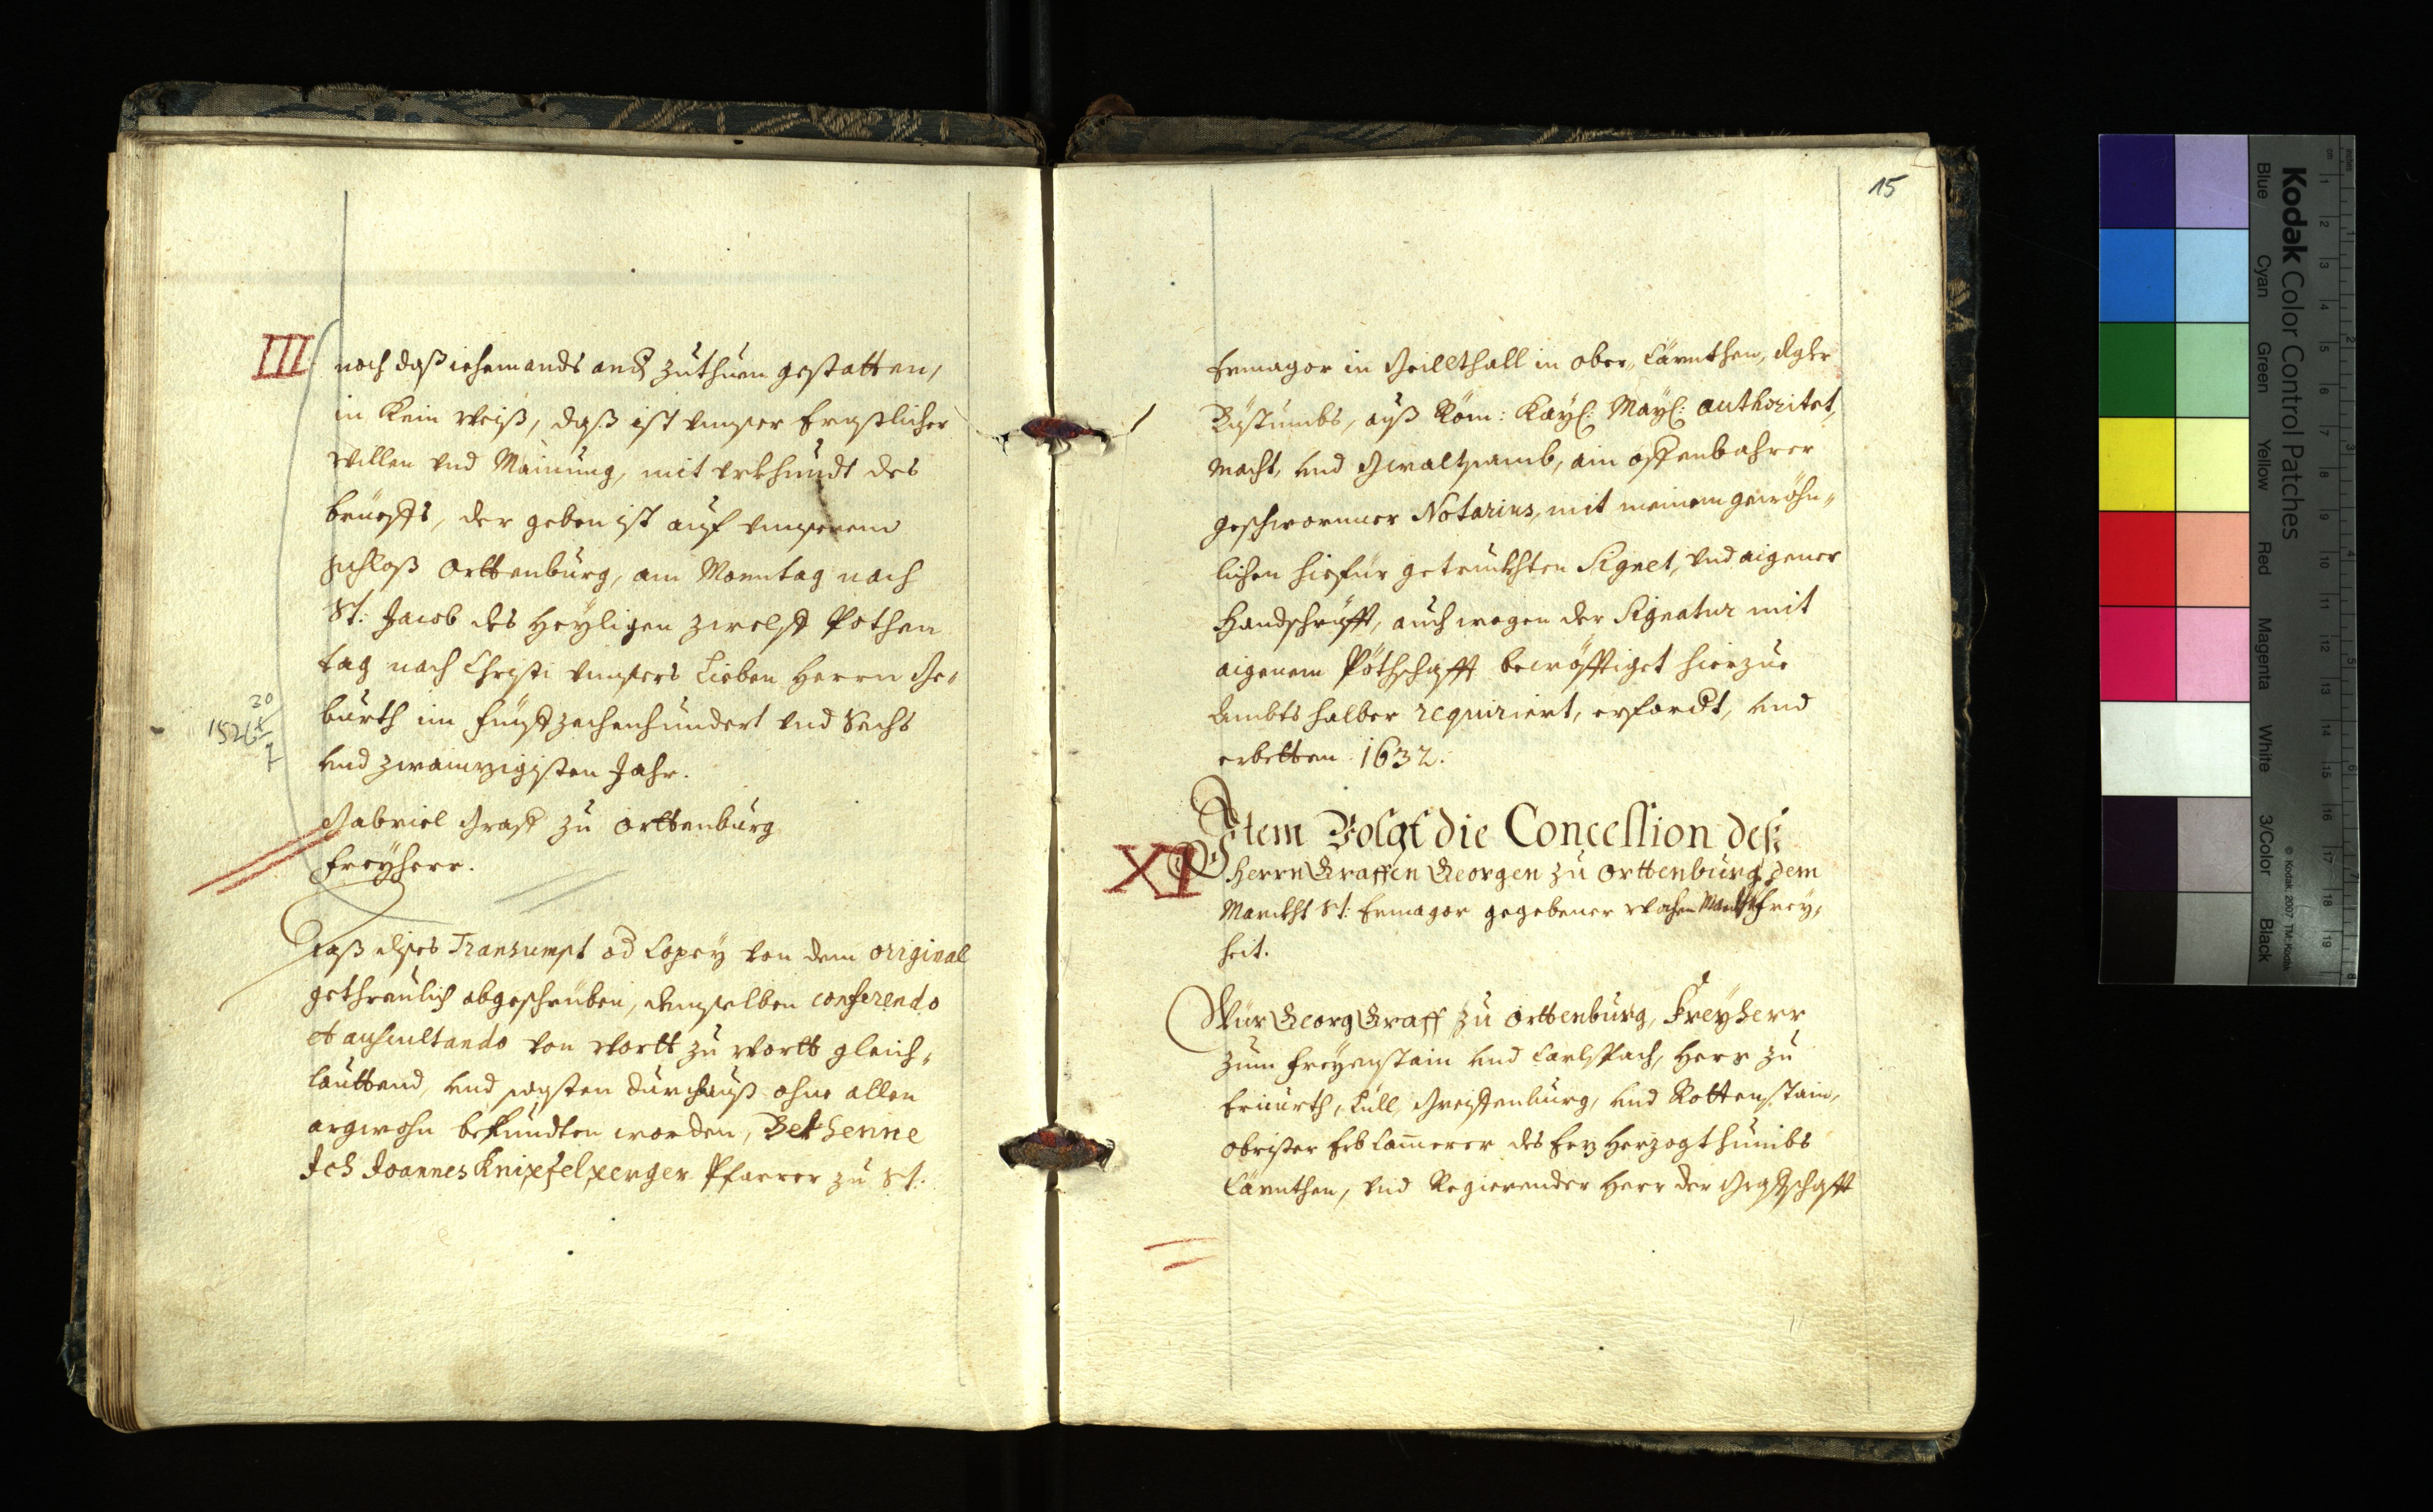 III
noch daß iehemands and zuthuen gestatten,
in kein weiß, daß ist vnnser Ernstlicher
willen vnd Mainung, mit vrkhundt des
brüeffs, der geben ist auf vnnserem
schloß Orttenburg, am Monntag nach
St: Jacob des Heyligen zwelff Pothen
tag nach Christi vnnsers Lieben Herrn Ge-
burth im fünffzechenhundert vnd Sechs
30/7
1526
vnd zwainzigisten Jahr.
Gabriel Graff zu Orttenburg
freyherr.
Daß dises Transumpt od Copey von dem original
gethreulich abgeschriben, demselben conferendo
et auscultando von wortt zu wortt gleich-
lauttend, vnd sonsten durchauß ohne allen
argwohn befundten worden, Bekhenne
Ich Joannes Knipfelperger Pfarrer zu St:
15
Ermagor in Geillthall in ober Cärnthen, Aglr
Bistumbs, auß Röm: Kayl: Mayl: authoritet,
macht, vnd Gwaltsamb, ain offenbahrer
geschwornner Notarius, mit meinem gewöhn-
lichen hiefür getruckhten Signet, vnd aigener
Handschrifft, auch wegen der Signatur mit
aigenem Pötschafft becröfftiget hierzue
Ambts halber requiriert, erfordt, vnd
erbetten 1632.
XI
Item Volgt die Concession deß
Herrn Graffen Georgen zu Orttenburg dem
Marckht St: Ermagor gegebener wochen Marckht frey-
heit.
Wür Georg Graff zu Orttenburg, Freyherr
zum freyenstain vnd Carlspach, Herr zu
Ericurth, Lüll, Greiffenburg, vnd Rottenstain,
obrister Erb Camerer des Erz Herzogthumbs
Cärnthen, vnd Regierender Herr der Graffschafft